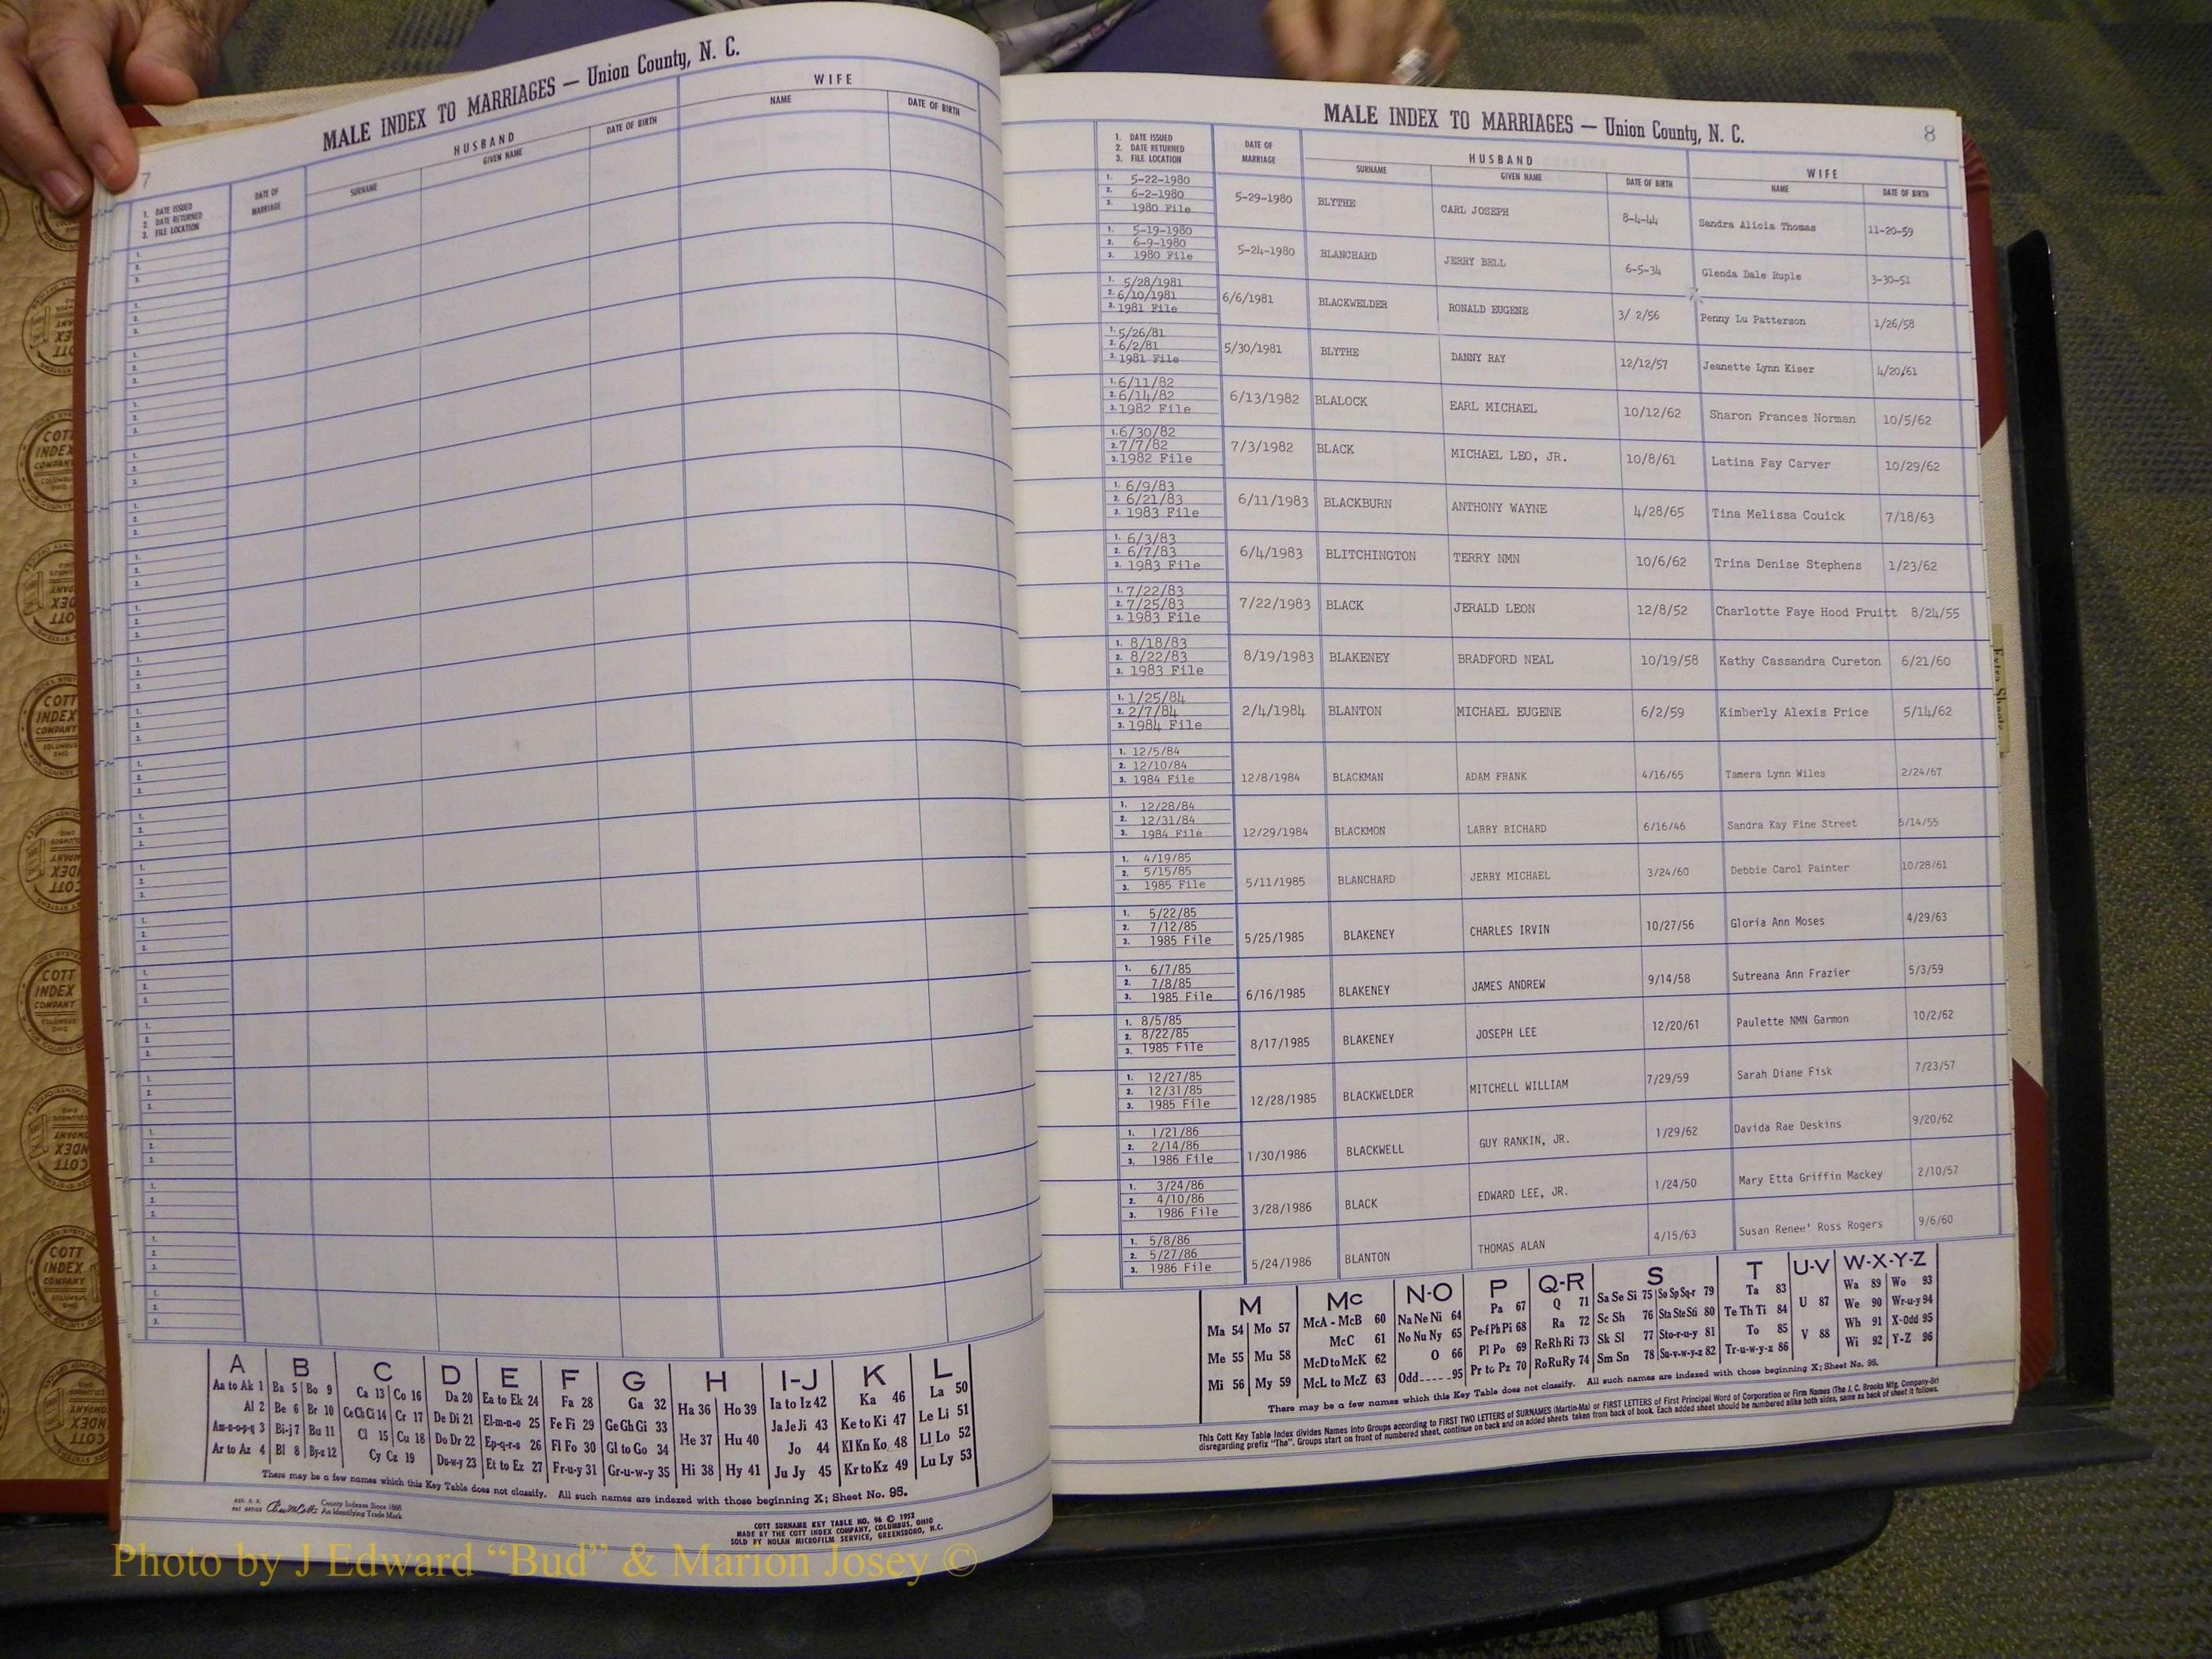 MALE INDEX TO MARRIAGES — Union County, N. C.
7
HUSBAND
WIFE
1. DATE ISSUED
2. DATE RETURNED
3. FILE LOCATION
DATE OF MARRIAGE
SURNAME
GIVEN NAME
DATE OF BIRTH
NAME
DATE OF BIRTH
A B C D E F G H I-J K L
Aa to Ak 1 Ba 5 Bo 9 Ca 13 Co 16 Da 20 Ea to Ek 24 Fa 28 Ga 32 Ha 36 Ho 39 Ia to Iz 42 Ka 46 La 50
Al 2 Be 6 Br 10 Ce Ch Ci 14 Cr 17 De Di 21 El-m-n-o 25 Fe Fi 29 Ge Gh Gi 33 He 37 Hu 40 Ja Je Ji 43 Ke to Ki 47 Le Li 51
Am-n-o-p-q 3 Bi-j 7 Bu 11 Cl 15 Cu 18 Do Dr 22 Ep-q-r-s 26 Fl Fo 30 Gl to Go 34 Hi 38 Hy 41 Jo 44 Kl Kn Ko 48 Ll Lo 52
Ar to Az 4 Bl 8 By-z 12 Cy Cz 19 Du-w-y 23 Et to Ez 27 Fr-u-y 31 Gr-u-w-y 35 Ju Jy 45 Kr to Kz 49 Lu Ly 53
There may be a few names which this Key Table does not classify. All such names are indexed with those beginning X; Sheet No. 95.
County Indexes Since 1888
An Identifying Trade Mark
COTT SURNAME KEY TABLE NO. 96 © 1952
MADE BY THE COTT INDEX COMPANY, COLUMBUS, OHIO
SOLD BY NOLAN MICROFILM SERVICE, GREENSBORO, N.C.
Photo by J Edward “Bud” & Marion Josey ©
MALE INDEX TO MARRIAGES — Union County, N. C.
8
1. DATE ISSUED
2. DATE RETURNED
3. FILE LOCATION
DATE OF MARRIAGE
HUSBAND
WIFE
SURNAME
GIVEN NAME
DATE OF BIRTH
NAME
DATE OF BIRTH
1. 5-22-1980
2. 6-2-1980
3. 1980 File
5-29-1980 BLYTHE CARL JOSEPH 8-4-44 Sandra Alicia Thomas 11-20-59
1. 5-19-1980
2. 6-9-1980
3. 1980 File
5-24-1980 BLANCHARD JERRY BELL 6-5-34 Glenda Dale Ruple 3-30-51
1. 5/28/1981
2. 6/10/1981
3. 1981 File
6/6/1981 BLACKWELDER RONALD EUGENE 3/ 2/56 Penny Lu Patterson 1/26/58
1. 5/26/81
2. 6/2/81
3. 1981 File
5/30/1981 BLYTHE DANNY RAY 12/12/57 Jeanette Lynn Kiser 4/20/61
1. 6/11/82
2. 6/14/82
3. 1982 File
6/13/1982 BLALOCK EARL MICHAEL 10/12/62 Sharon Frances Norman 10/5/62
1. 6/30/82
2. 7/7/82
3. 1982 File
7/3/1982 BLACK MICHAEL LEO, JR. 10/8/61 Latina Fay Carver 10/29/62
1. 6/9/83
2. 6/21/83
3. 1983 File
6/11/1983 BLACKBURN ANTHONY WAYNE 4/28/65 Tina Melissa Couick 7/18/63
1. 6/3/83
2. 6/7/83
3. 1983 File
6/4/1983 BLITCHINGTON TERRY NMN 10/6/62 Trina Denise Stephens 1/23/62
1. 7/22/83
2. 7/25/83
3. 1983 File
7/22/1983 BLACK JERALD LEON 12/8/52 Charlotte Faye Hood Pruitt 8/24/55
1. 8/18/83
2. 8/22/83
3. 1983 File
8/19/1983 BLAKENEY BRADFORD NEAL 10/19/58 Kathy Cassandra Cureton 6/21/60
1. 1/25/84
2. 2/7/84
3. 1984 File
2/4/1984 BLANTON MICHAEL EUGENE 6/2/59 Kimberly Alexis Price 5/14/62
1. 12/5/84
2. 12/10/84
3. 1984 File
12/8/1984 BLACKMAN ADAM FRANK 4/16/65 Tamera Lynn Wiles 2/24/67
1. 12/28/84
2. 12/31/84
3. 1984 File
12/29/1984 BLACKMON LARRY RICHARD 6/16/46 Sandra Kay Fine Street 5/14/55
1. 4/19/85
2. 5/15/85
3. 1985 File
5/11/1985 BLANCHARD JERRY MICHAEL 3/24/60 Debbie Carol Painter 10/28/61
1. 5/22/85
2. 7/12/85
3. 1985 File
5/25/1985 BLAKENEY CHARLES IRVIN 10/27/56 Gloria Ann Moses 4/29/63
1. 6/7/85
2. 7/8/85
3. 1985 File
6/16/1985 BLAKENEY JAMES ANDREW 9/14/58 Sutreana Ann Frazier 5/3/59
1. 8/5/85
2. 8/22/85
3. 1985 File
8/17/1985 BLAKENEY JOSEPH LEE 12/20/61 Paulette NMN Garmon 10/2/62
1. 12/27/85
2. 12/31/85
3. 1985 File
12/28/1985 BLACKWELDER MITCHELL WILLIAM 7/29/59 Sarah Diane Fisk 7/23/57
1. 1/21/86
2. 2/14/86
3. 1986 File
1/30/1986 BLACKWELL GUY RANKIN, JR. 1/29/62 Davida Rae Deskins 9/20/62
1. 3/24/86
2. 4/10/86
3. 1986 File
3/28/1986 BLACK EDWARD LEE, JR. 1/24/50 Mary Etta Griffin Mackey 2/10/57
1. 5/8/86
2. 5/27/86
3. 1986 File
5/24/1986 BLANTON THOMAS ALAN 4/15/63 Susan Renee' Ross Rogers 9/6/60
M Mc N-O P Q-R S T U-V W-X-Y-Z
Ma 54 Mo 57 McA - McB 60 Na Ne Ni 64 Pa 67 Q 71 Sa Se Si 75 So Sp Sq-r 79 Ta 83 U 87 Wa 89 Wo 93
Me 55 Mu 58 McC 61 No Nu Ny 65 Pe-f Ph Pi 68 Ra 72 Sc Sh 76 Sta Ste Sti 80 Te Th Ti 84 V 88 We 90 Wr-u-y 94
Mi 56 My 59 McD to McK 62 O 66 Pl Po 69 Re Rh Ri 73 Sk Sl 77 Sto-r-u-y 81 To 85 Wh 91 X-Odd 95
McL to McZ 63 Odd 95 Pr to Pz 70 Ro Ru Ry 74 Sm Sn 78 Su-v-w-y-z 82 Tr-u-w-y-z 86 Wi 92 Y-Z 96
There may be a few names which this Key Table does not classify. All such names are indexed with those beginning X; Sheet No. 95.
This Cott Key Table Index divides Names Into Groups according to FIRST TWO LETTERS of SURNAMES (Martin-Ma) or FIRST LETTERS of First Principal Word of Corporation or Firm Names (The J. C. Brooks Mfg. Company-Br)
disregarding prefix "The". Groups start on front of numbered sheet, continue on back and on added sheets taken from back of book. Each added sheet should be numbered alike both sides, same as back of sheet it follows.
Extra Sheets
COTT INDEX COMPANY
COLUMBUS OHIO